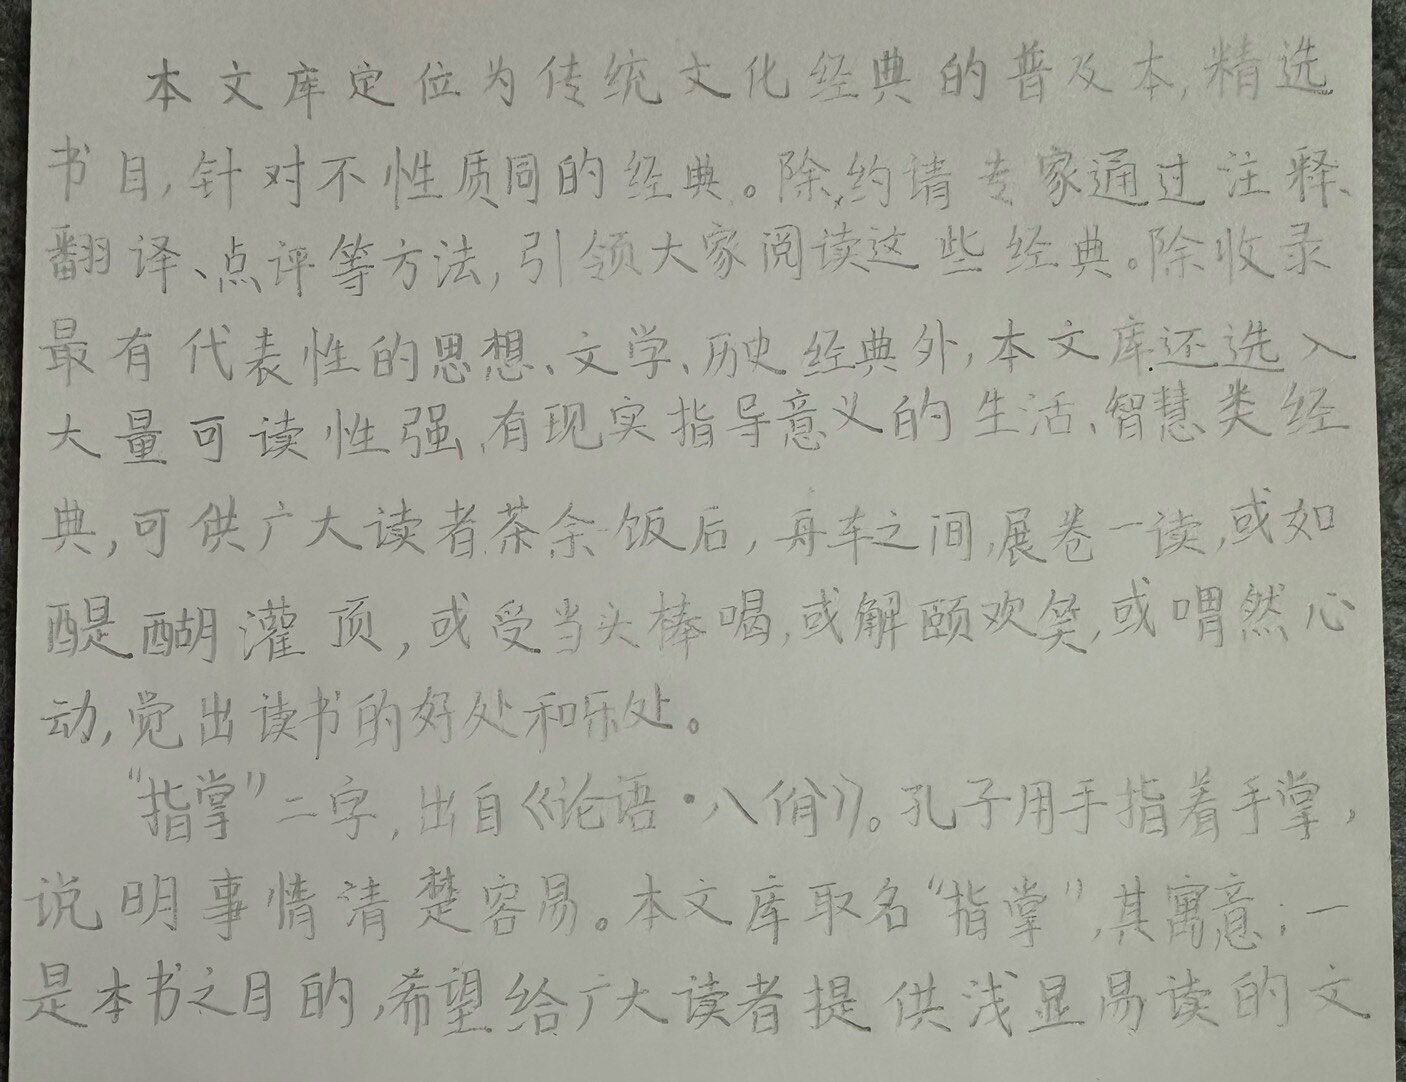 本文库定位为传统文化经典的普及本,精选
书目,针对不性质同的经典。除,约请专家通过注释、
翻译、点评等方法,引领大家阅读这些经典。除收录
最有代表性的思想、文学、历史经典外,本文库还选入
大量可读性强、有现实指导意义的生活、智慧类经
典,可供广大读者茶余饭后,舟车之间,展卷一读,或如
醍醐灌顶,或受当头棒喝,或解颐欢笑,或喟然心
动,觉出读书的好处和乐处。
“指掌”二字,出自《论语·八佾》。孔子用手指着手掌,
说明事情清楚容易。本文库取名“指掌”,其寓意:一
是本书之目的,希望给广大读者提供浅显易读的文